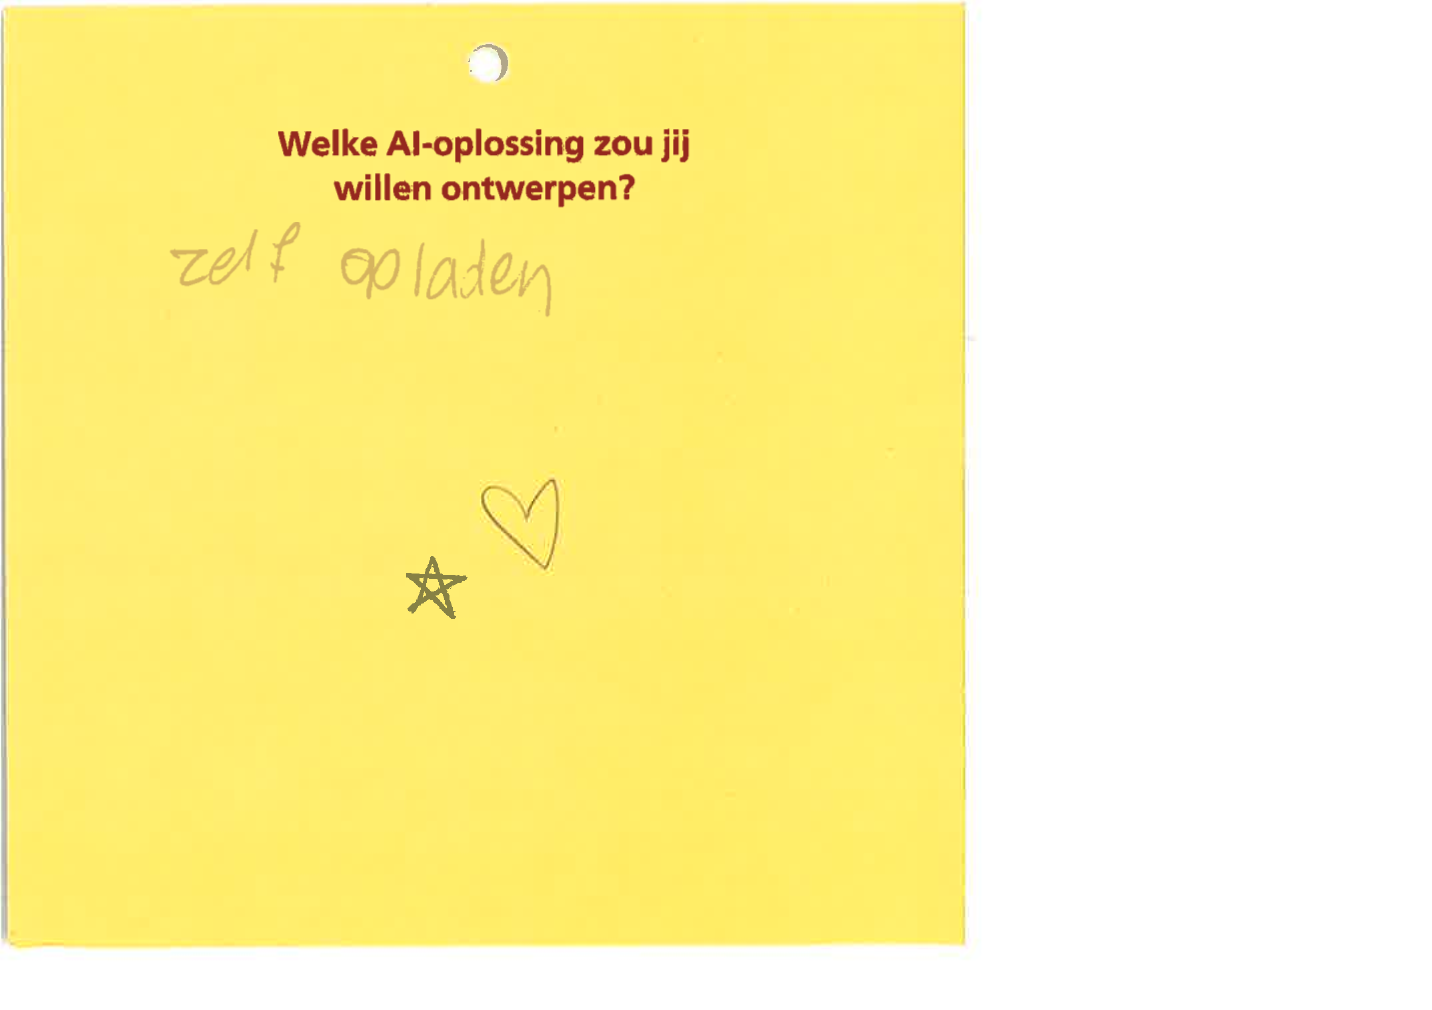 Welke AI-oplossing zou jij
willen ontwerpen?
zelf opladen